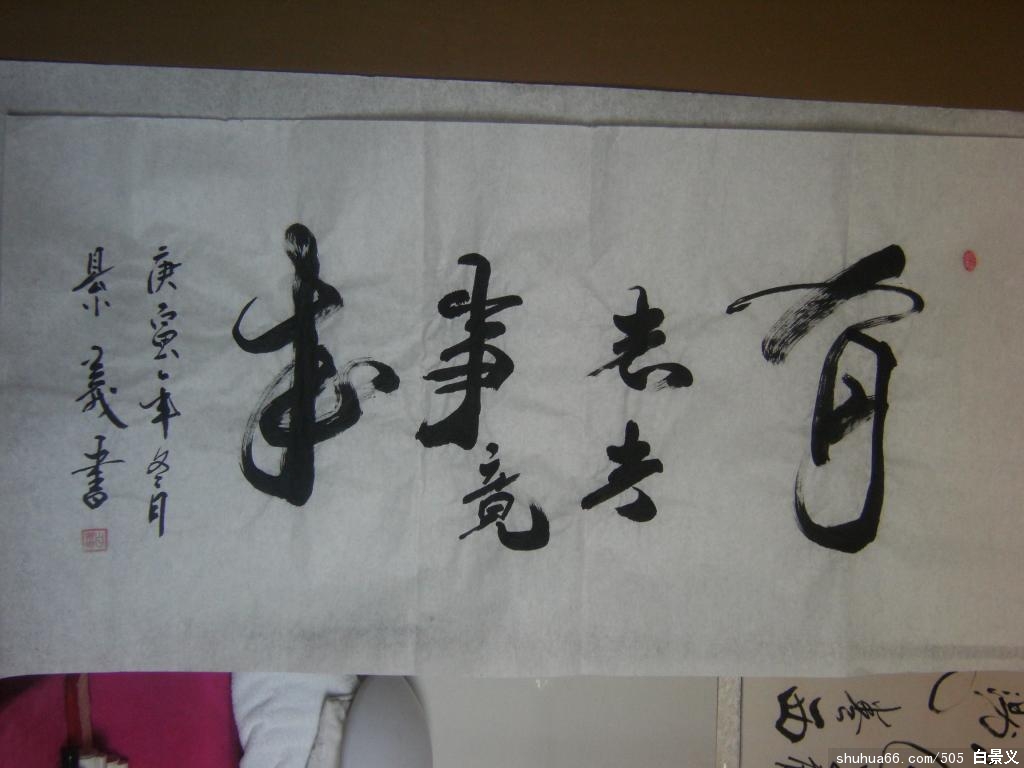 有
志者
事竟
成
庚寅年冬月
景義書
shuhua66.com/505 白景义